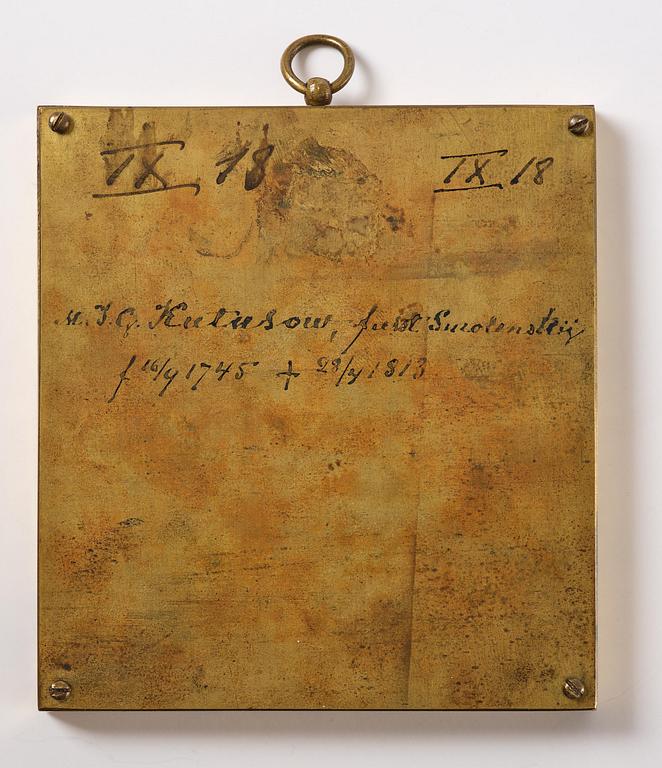 IX 18 IX 18
M. I. G. Kutusow, furst Smolenskij
f 16/9 1745 + 28/4 1813